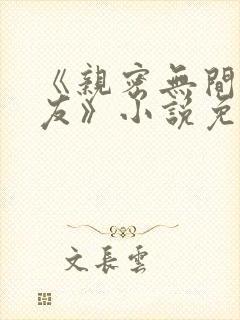 《親密無間
友》小說免
文長雲